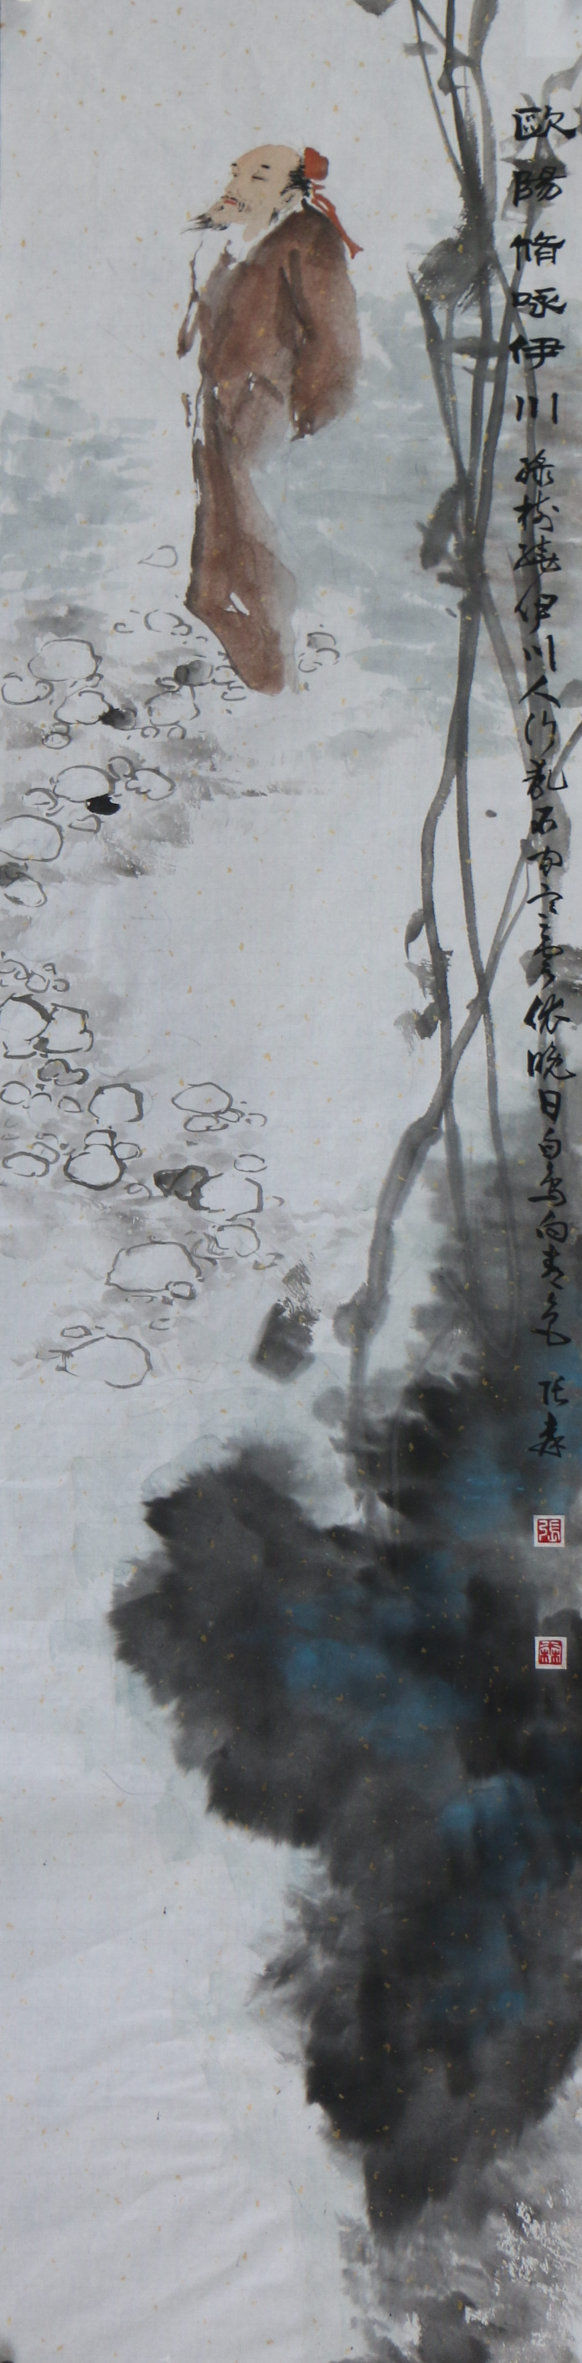 歐陽脩咏伊川 綠樹繞伊川人行亂石間寒雲依晚日白鳥向青 张森
張